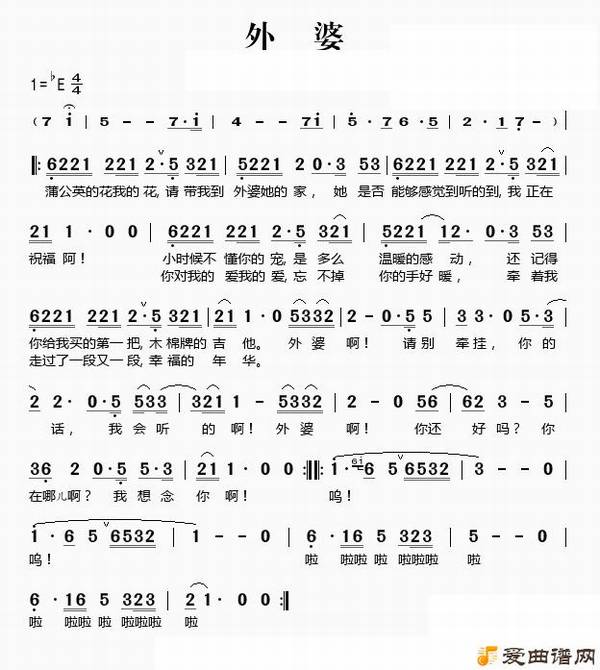 外 婆
1=♭E 4/4
( 7 i | 5 - - 7·i | 4 - - 7i | 5·7 6·5 | 2·1 7 - ) |
‖: 6221 221 2·5 321 | 5221 2 0·3 53 | 6221 221 2·5 321
蒲公英的花我的花,请 带我到 外婆她的 家, 她 是否 能够感觉到听的到,我 正在
21 1·0 0 | 6221 221 2·5 321 | 5221 12· 0·3 53 |
祝福 阿! 小时候不 懂你的 宠,是 多么 温暖的感 动, 还 记得
你对我的 爱我的 爱,忘 不掉 你的手好 暖, 牵 着我
6221 221 2·5 321 | 21 1·0 5332 | 2 - 0·5 5 | 3 3·0 5 1 |
你给我买的第一 把,木 棉牌的 吉 他。 外 婆 啊! 请 别 牵 挂, 你 的
走过了一段又一 段,幸 福的 年 华。
2 2· 0·5 533 | 321 1 - 5332 | 2 - 0 56 | 62 3·5 |
话, 我 会 听 的 啊! 外 婆 啊! 你还 好 吗? 你
36 2·0·5 5·3 | 21 1·0 0 :‖‖: 1·6 5 6532 | 3 - - 0 |
在哪儿啊? 我 想 念 你 啊! 呜!
1·6 5 6532 | 1 - - 0 | 6·16 5 323 | 5 - - 0 |
呜! 啦 啦啦 啦 啦啦啦 啦
6·16 5 323 | 2 1·0 0 :‖
啦 啦啦 啦 啦啦啦 啦
爱曲谱网